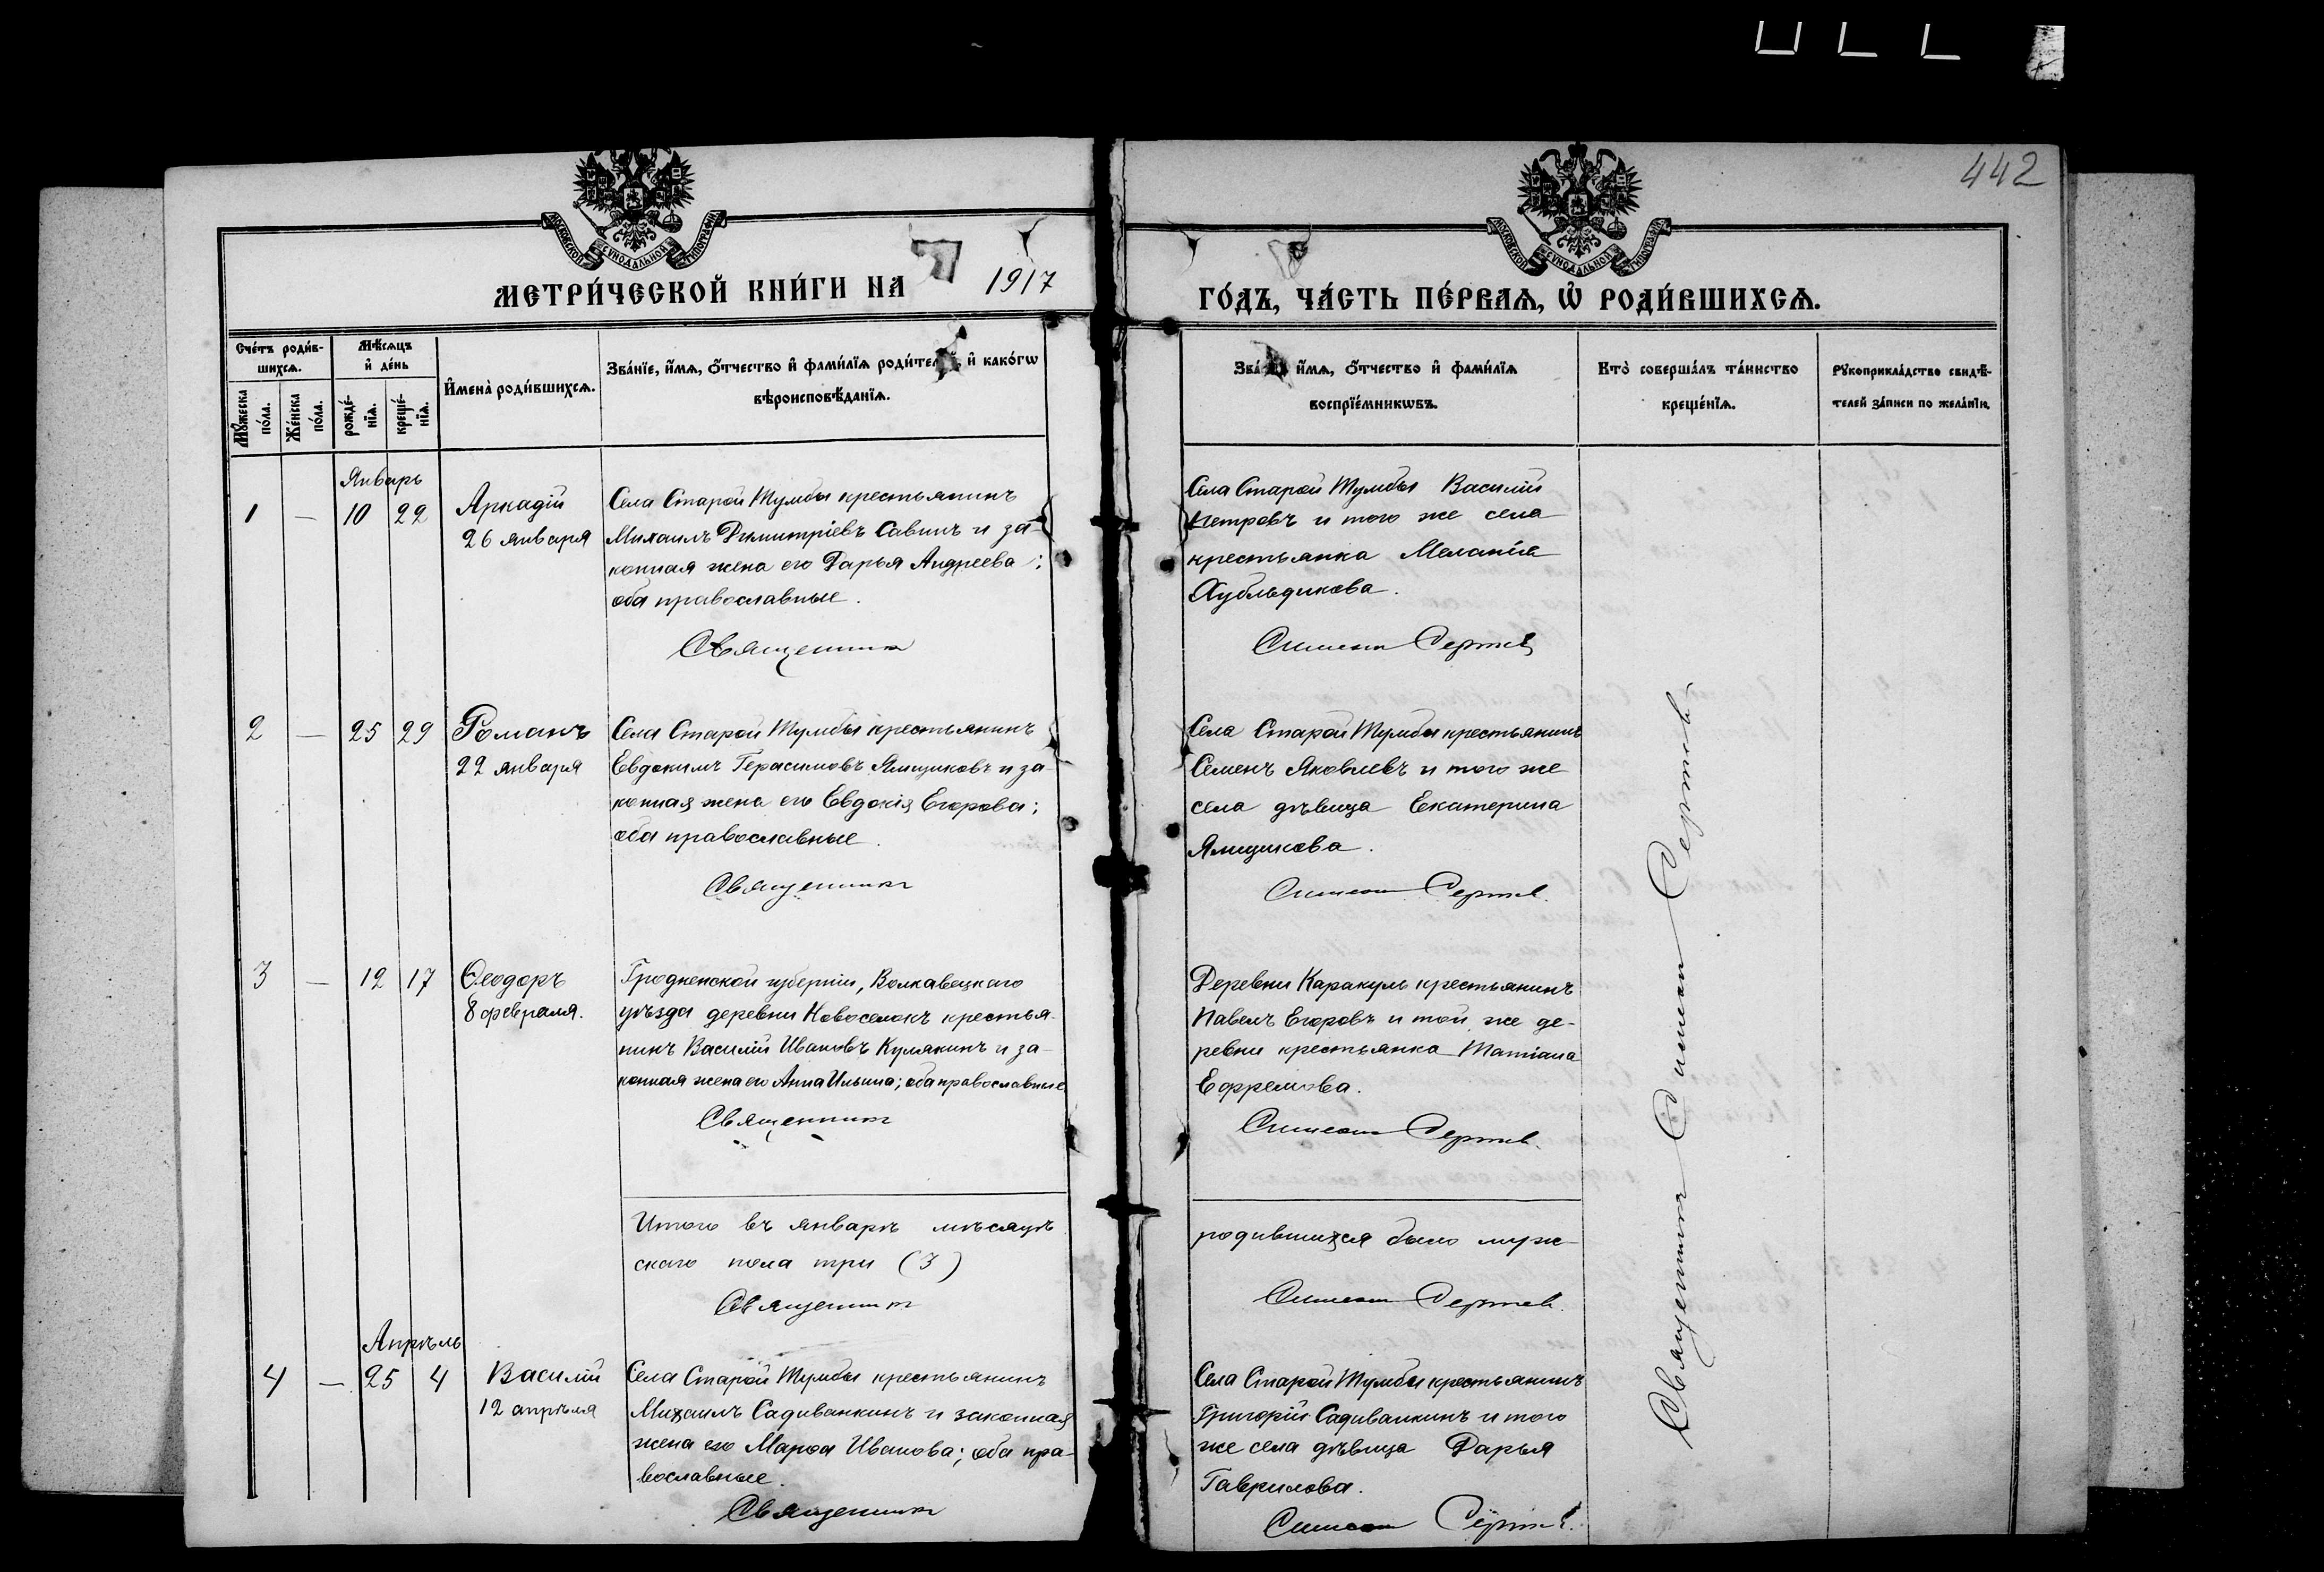 442
МОСКОВСКОЙ СѴНОДАЛЬНОЙ ТИПОГРАФІИ
МОСКОВСКОЙ СѴНОДАЛЬНОЙ ТИПОГРАФІИ
МЕТРИ́ЧЕСКОЙ КНИ́ГИ НА 1917
ГО́ДЪ, ЧА́СТЬ ПЕ́РВАѦ, Ѡ҆ РОДИ́ВШИХСѦ.
Сче́тъ роди́в-
шихсѧ.
Мꙋ́жеска
по́ла.
Же́нска
по́ла.
Мѣ́сѧцъ
и҆ де́нь
рожде́-
нїѧ.
креще́-
нїѧ.
И҆мена̀ роди́вшихсѧ.
Зва́нїе, и҆́мѧ, ѻ҆́тчество и҆ фами́лїѧ роди́тел и҆ како́гѡ
вѣроисповѣ́данїѧ.
и҆́мѧ, ѻ҆́тчество и҆ фами́лїѧ
воспрїе́мникѡвъ.
Кто̀ соверша́лъ та́инство
креще́нїѧ.
Рꙋкоприкла́дство свидѣ́-
телей за́писи по жела́нїю.
Январь
1 — 10 22
Аркадій
26 января
Села Старой Тумбы крестьянинъ
Михаилъ Димитріевъ Савинъ и за-
конная жена его Дарья Андреева;
оба православные.
Священникъ
Села Старой Тумбы Василій
Петровъ и того же села
крестьянка Меланія
Симеон Сергѣев
2 — 25 29
Романъ
22 января
Села Старой Тумбы крестьянинъ
Евдокимъ Герасимовъ Ямщиковъ и за-
конная жена его Евдокія Егорова;
оба православные.
Священникъ
Села Старой Тумбы крестьянинъ
Семенъ Яковлевъ и того же
села дѣвица Екатерина
Ямщикова.
Симеон Сергѣев.
3 — 12 17
Ѳеодоръ
8 февраля.
Гродненской губерніи, Волкавецкаго
уѣзда деревни Новоселокъ крестья-
нинъ Василій Ивановъ Кулякинъ и за-
конная жена его Анна Ильина; оба православные
Священникъ
Деревни Каракуль крестьянинъ
Павелъ Егоровъ и той же де-
ревни крестьянка Татіана
Ефремова.
Симеон Сергѣев.
Итого въ январѣ мѣсяцѣ
родившихся было муж-
скаго пола три (3)
Священникъ
Симеон Сергѣев.
Апрѣль
4 — 25 4
Василій
12 апрѣля
Села Старой Тумбы крестьянинъ
Михаилъ Садиванкинъ и законная
жена его Марѳа Иванова; оба пра-
вославные.
Священникъ
Села Старой Тумбы крестьянинъ
Григорій Садиванкинъ и того
же села дѣвица Дарья
Гаврилова.
Симеон Сергѣев.
Священникъ Симеон Сергѣевъ